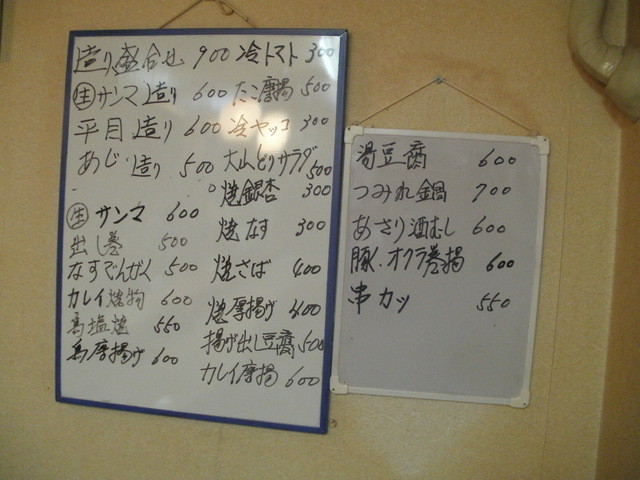 造り盛合せ 900
生サンマ造り 600
平目造り 600
あじ造り 500
生サンマ 600
出し巻 500
なすでんがく 500
カレイ焼物 600
鳥塩焼 550
鳥唐揚げ 600
冷トマト 300
たこ唐揚 500
冷ヤッコ 300
大山どりサラダ 500
焼銀杏 300
焼なす 300
焼さば 400
焼厚揚げ 400
揚げ出し豆腐 500
カレイ唐揚 600
湯豆腐 600
つみれ鍋 700
あさり酒むし 600
豚、オクラ巻揚 600
串カツ 550